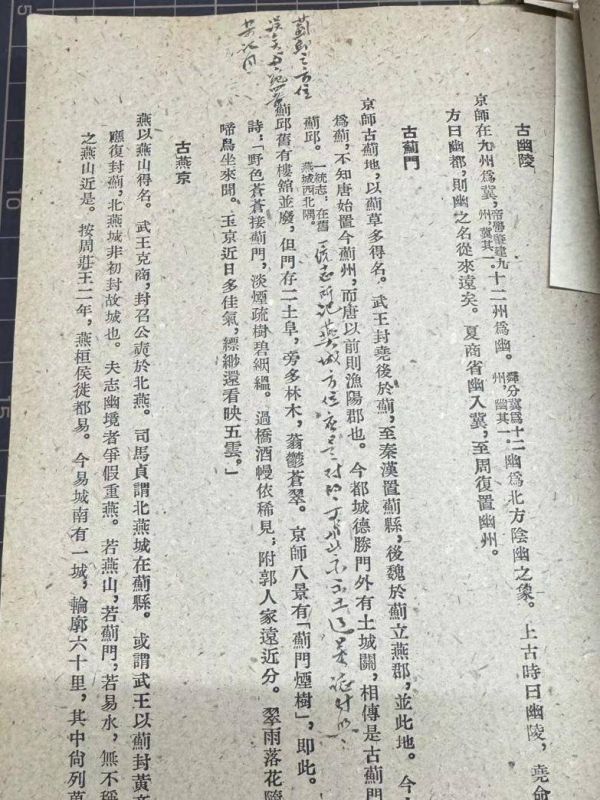 古幽陵
京師在九州爲冀,帝嚳肇建九州,冀其一。十二州爲幽。舜分冀爲十二州,幽其一。幽爲北方陰幽之象。上古時曰幽陵,堯命
方曰幽都,則幽之名從來遠矣。夏商省幽入冀,至周復置幽州。
古薊門
京師古薊地,以薊草多得名。武王封堯後於薊,至秦漢置薊縣,後魏於薊立燕郡,並此地。今
爲薊,不知唐始置今薊州,而唐以前則漁陽郡也。今都城德勝門外有土城關,相傳是古薊門
薊邱。一統志,在舊燕城西北隅。
一統志所記燕城方位
薊邱舊有樓館並廢,但門存二土阜,旁多林木,蓊鬱蒼翠。京師八景有「薊門煙樹」,即此。
詩:「野色蒼蒼接薊門,淡煙疏樹碧絪縕。過橋酒幔依稀見;附郭人家遠近分。翠雨落花隨
啼鳥坐來聞。玉京近日多佳氣,縹緲還看映五雲。」
之方位
古燕京
燕以燕山得名。武王克商,封召公奭於北燕。司馬貞謂北燕城在薊縣。或謂武王以薊封黃帝
應復封薊,北燕城非初封故城也。夫志幽境者爭假重燕。若燕山,若薊門,若易水,無不稱
之燕山近是。按周莊王二年,燕桓侯徙都易。今易城南有一城,輪廓六十里,其中尙列
5
10
15